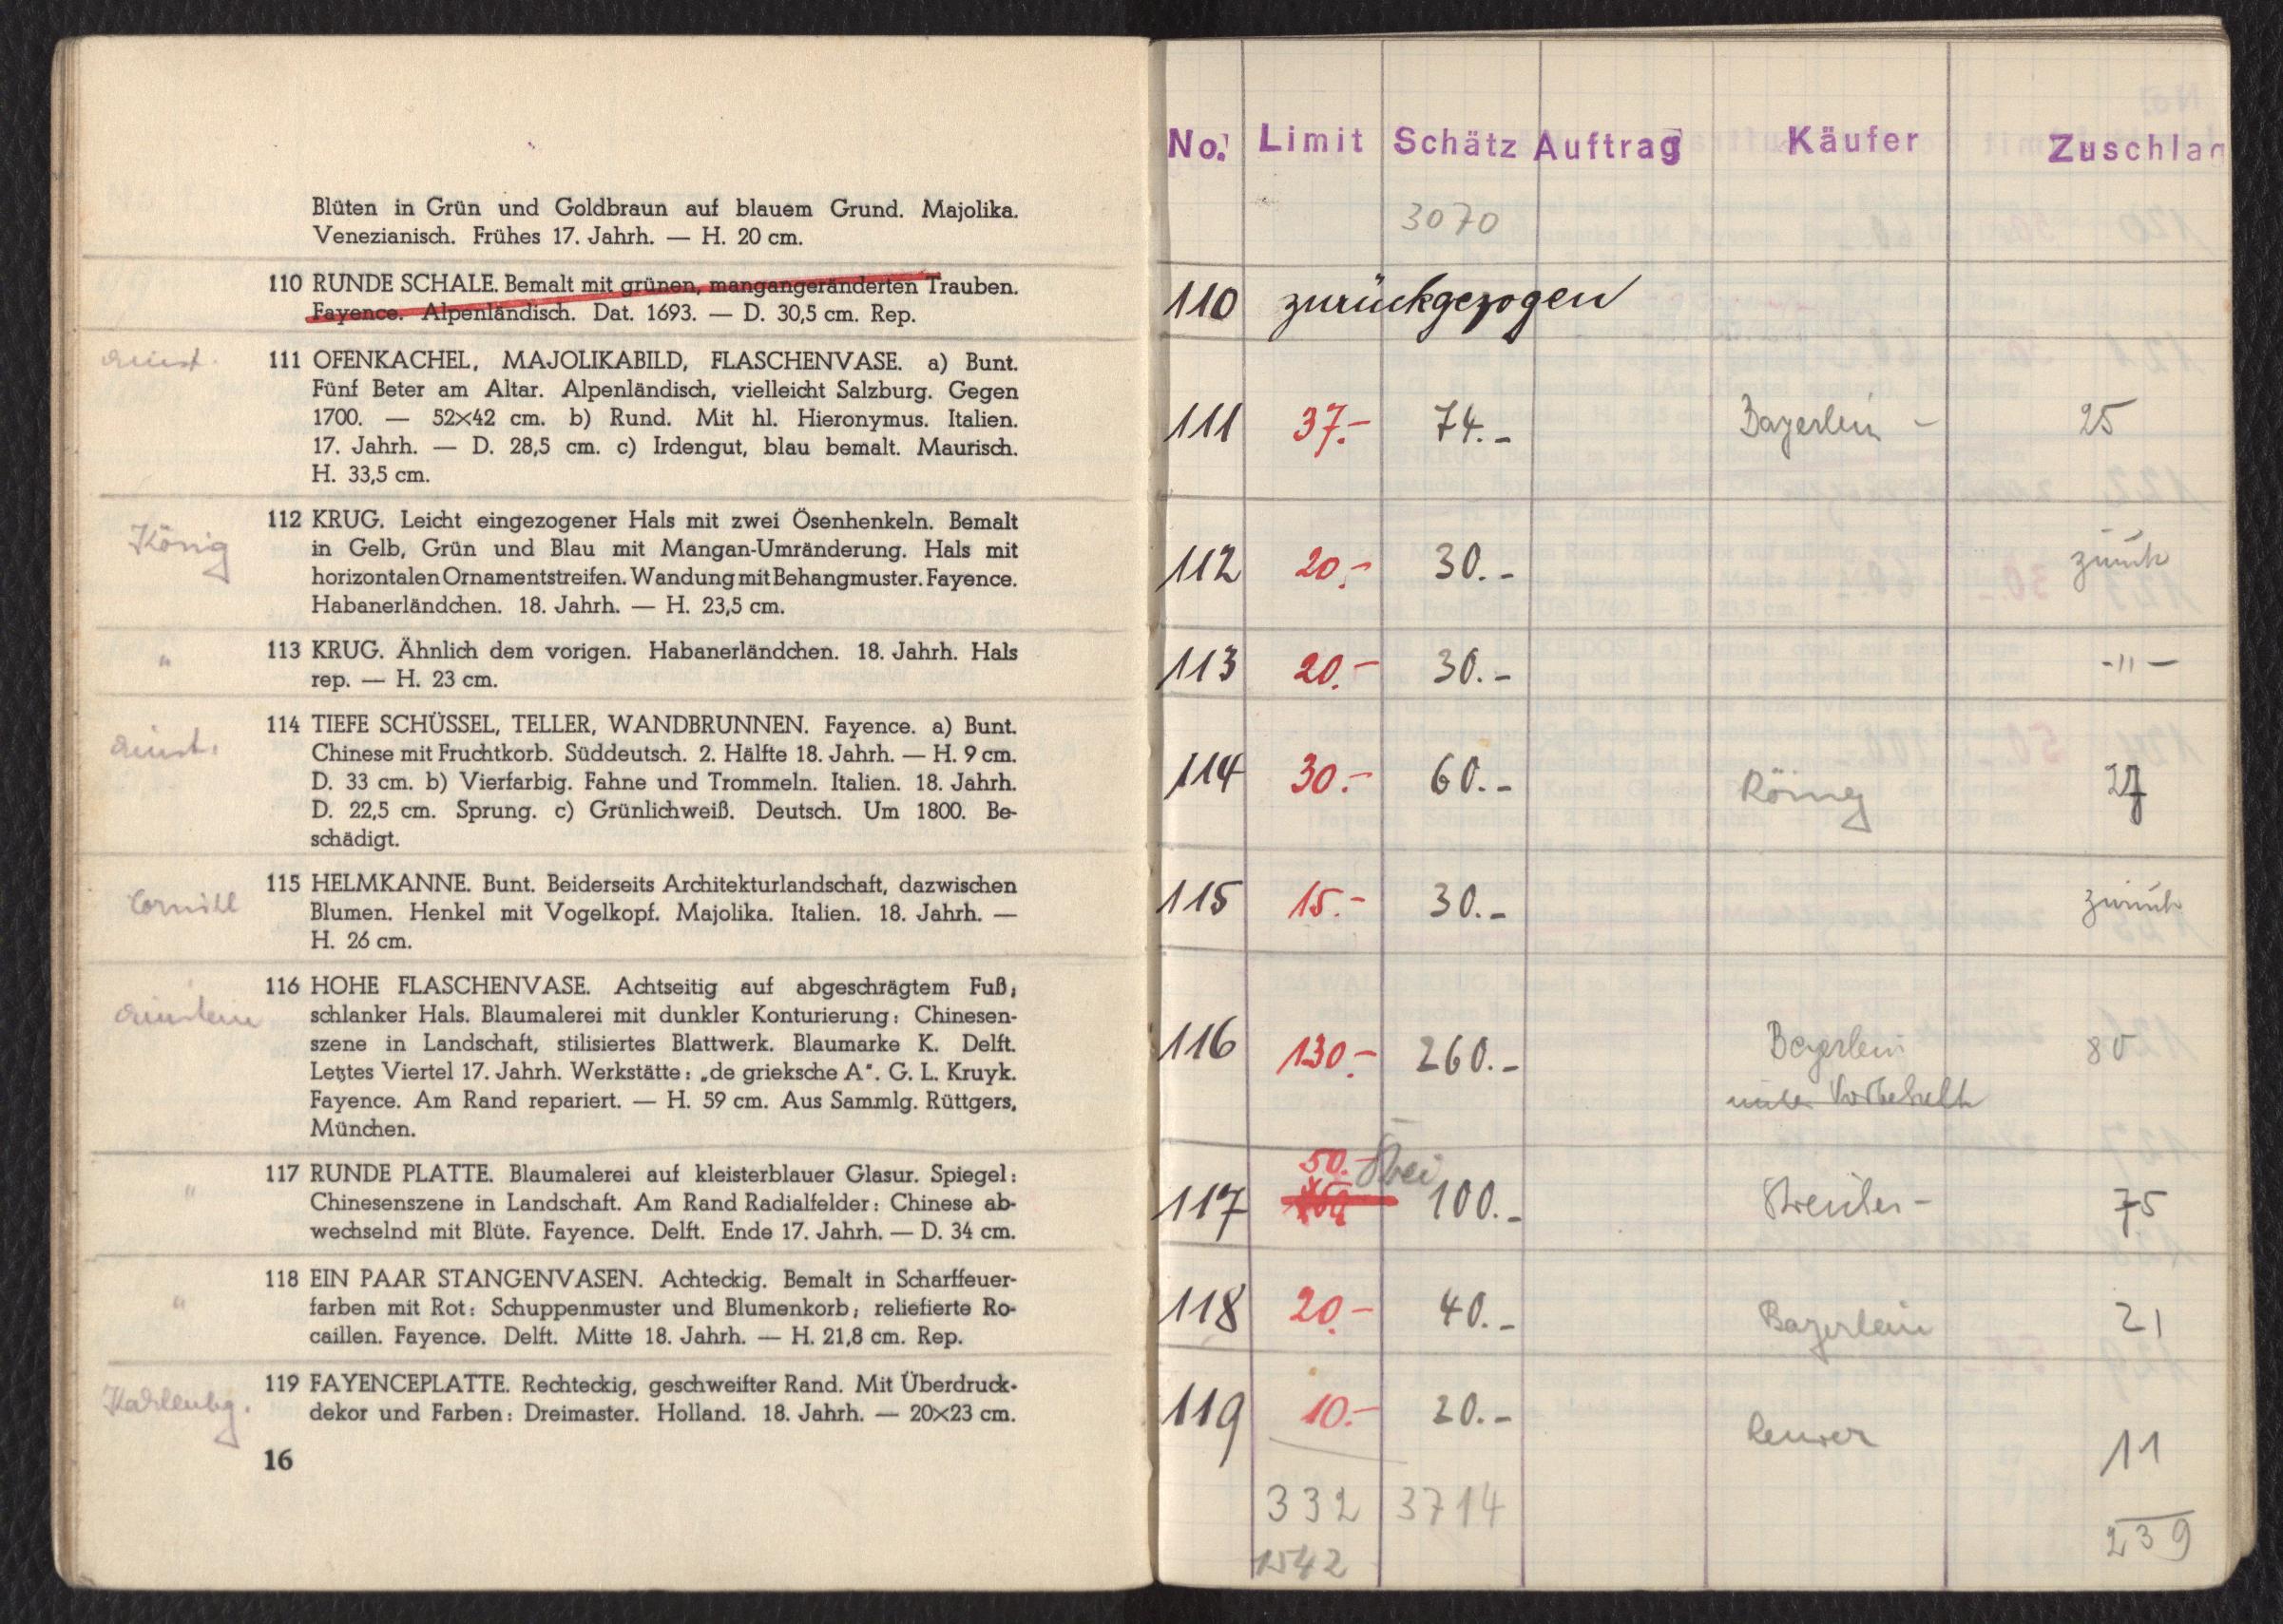 Blüten in Grün und Goldbraun auf blauem Grund. Majolika.
Venezianisch. Frühes 17. Jahrh. — H. 20 cm.
110 RUNDE SCHALE. Bemalt mit grünen, mangangeränderten Trauben.
Fayence. Alpenländisch. Dat. 1693. — D. 30,5 cm. Rep.
111 OFENKACHEL, MAJOLIKABILD, FLASCHENVASE. a) Bunt.
Fünf Beter am Altar. Alpenländisch, vielleicht Salzburg. Gegen
1700. — 52×42 cm. b) Rund. Mit hl. Hieronymus. Italien.
17. Jahrh. — D. 28,5 cm. c) Irdengut, blau bemalt. Maurisch.
H. 33,5 cm.
König
112 KRUG. Leicht eingezogener Hals mit zwei Ösenhenkeln. Bemalt
in Gelb, Grün und Blau mit Mangan-Umränderung. Hals mit
horizontalen Ornamentstreifen. Wandung mit Behangmuster. Fayence.
Habanerländchen. 18. Jahrh. — H. 23,5 cm.
" 113 KRUG. Ähnlich dem vorigen. Habanerländchen. 18. Jahrh. Hals
rep. — H. 23 cm.
114 TIEFE SCHÜSSEL, TELLER, WANDBRUNNEN. Fayence. a) Bunt.
Chinese mit Fruchtkorb. Süddeutsch. 2. Hälfte 18. Jahrh. — H. 9 cm.
D. 33 cm. b) Vierfarbig. Fahne und Trommeln. Italien. 18. Jahrh.
D. 22,5 cm. Sprung. c) Grünlichweiß. Deutsch. Um 1800. Be-
schädigt.
115 HELMKANNE. Bunt. Beiderseits Architekturlandschaft, dazwischen
Blumen. Henkel mit Vogelkopf. Majolika. Italien. 18. Jahrh. —
H. 26 cm.
116 HOHE FLASCHENVASE. Achtseitig auf abgeschrägtem Fuß;
schlanker Hals. Blaumalerei mit dunkler Konturierung: Chinesen-
szene in Landschaft, stilisiertes Blattwerk. Blaumarke K. Delft.
Letztes Viertel 17. Jahrh. Werkstätte: „de grieksche A". G. L. Kruyk.
Fayence. Am Rand repariert. — H. 59 cm. Aus Sammlg. Rüttgers,
München.
" 117 RUNDE PLATTE. Blaumalerei auf kleisterblauer Glasur. Spiegel:
Chinesenszene in Landschaft. Am Rand Radialfelder: Chinese ab-
wechselnd mit Blüte. Fayence. Delft. Ende 17. Jahrh. — D. 34 cm.
" 118 EIN PAAR STANGENVASEN. Achteckig. Bemalt in Scharffeuer-
farben mit Rot: Schuppenmuster und Blumenkorb; reliefierte Ro-
caillen. Fayence. Delft. Mitte 18. Jahrh. — H. 21,8 cm. Rep.
119 FAYENCEPLATTE. Rechteckig, geschweifter Rand. Mit Überdruck-
dekor und Farben: Dreimaster. Holland. 18. Jahrh. — 20×23 cm.
16
No. Limit Schätz Auftrag Käufer Zuschlag
3070
110 zurückgezogen
111 37.- 74.- Bayerlein - 25
112 20.- 30.- zurück
113 20.- 30.- -"-
114 30.- 60.- 27
115 15.- 30.- zurück
116 130.- 260.- Bayerlein 80
unter Vorbehalt
50.-
117 100.- 75
118 20.- 40.- Bayerlein 21
119 10.- 20.- 11
332 3714
239
1542